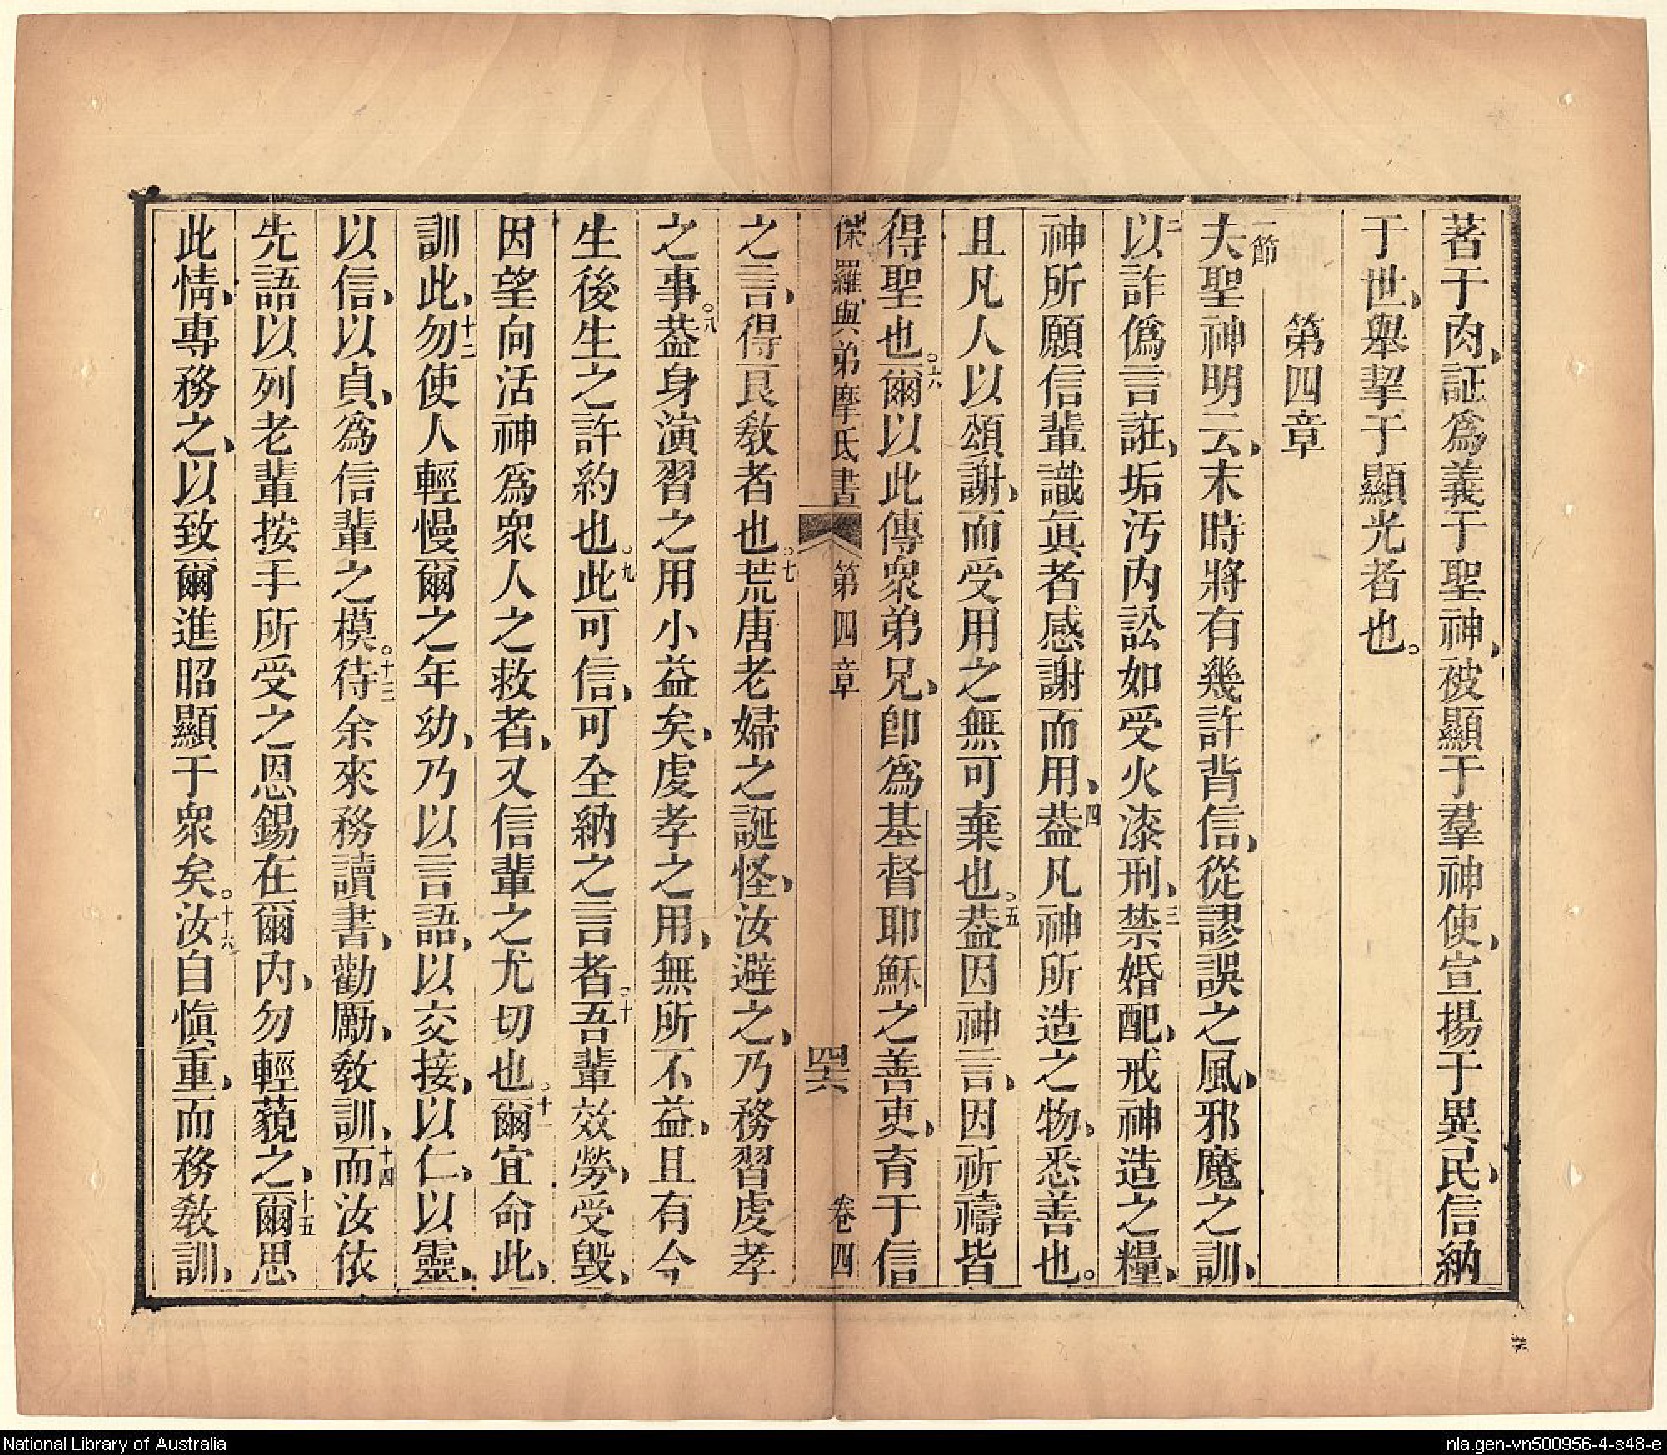 著于肉、証爲義于聖神、被顯于羣神使、宣揚于異民、信納
于世、舉挈于顯光者也。
第四章
一節
夫聖神明云、末時將有幾許背信、從謬誤之風、邪魔之訓、
二以詐僞言誑、垢汚內訟如受火漆刑、三禁婚配、戒神造之糧、
神所願信輩識眞者感謝而用、四葢凡神所造之物、悉善也。
且凡人以頌謝、而受用之無可棄也。五葢因神言、因祈禱皆
得聖也。六爾以此傳衆弟兄、卽爲基督耶穌之善吏、育于信
保羅與弟摩氏書 第四章 四六 卷四
之言、得良敎者也。七荒唐老婦之誕怪、汝避之、乃務習虔孝
之事。八葢身演習之用小益矣、虔孝之用、無所不益、且有今
生後生之許約也。九此可信、可全納之言者。十吾輩效勞、受毀、
因望向活神爲衆人之救者、又信輩之尤切也。十一爾宜命此、
訓此、十二勿使人輕慢爾之年幼、乃以言語、以交接、以仁、以靈、
以信、以貞、爲信輩之模。十三待余來務讀書、勸勵、敎訓、十四而汝依
先語以列老輩按手所受之恩錫在爾內、勿輕藐之、十五爾思
此情、專務之、以致爾進昭顯于衆矣。十六汝自愼重、而務敎訓、
National Library of Australia
nla.gen-vn500956-4-s48-e